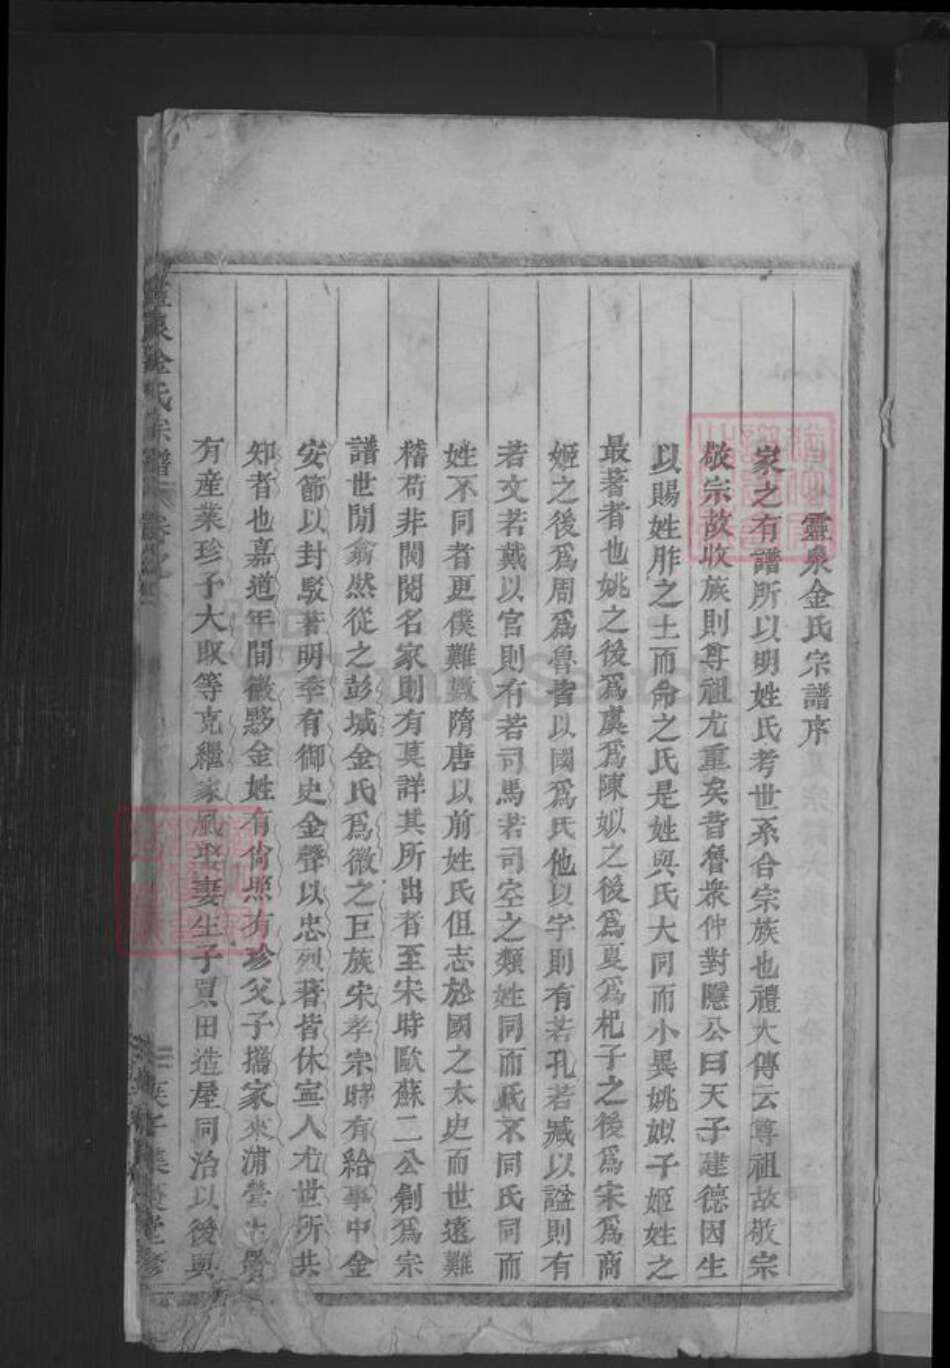 靈泉金氏宗譜序
家之有譜所以明姓氏考世系合宗族也禮大傳云尊祖故敬宗
敬宗故收族則尊祖尤重矣昔魯衆仲對隱公曰天子建德因生
以賜姓胙之土而命之氏是姓與氏大同而小異姚姒子姬姓之
最著者也姚之後爲虞爲陳姒之後爲夏爲杞子之後爲宋爲商
姬之後爲周爲魯皆以國爲氏他以字則有若孔若臧以謚則有
若文若戴以官則有若司馬若司空之類姓同而氏不同氏同而
姓不同者更僕難數隋唐以前姓氏但志於國之太史而世遠難
稽苟非閥閱名家則有莫詳其所出者至宋時歐蘇二公創爲宗
譜世閒翕然從之彭城金氏爲徽之巨族宋孝宗時有給事中金
安節以封駁著明季有御史金聲以忠烈著皆休寧人尤世所共
知者也嘉道年間徽黟金姓有尙照有珍父子攜家來浦營生學
有産業珍子大取等克繼家風娶妻生子買田造屋同治以後興
靈泉金氏宗譜